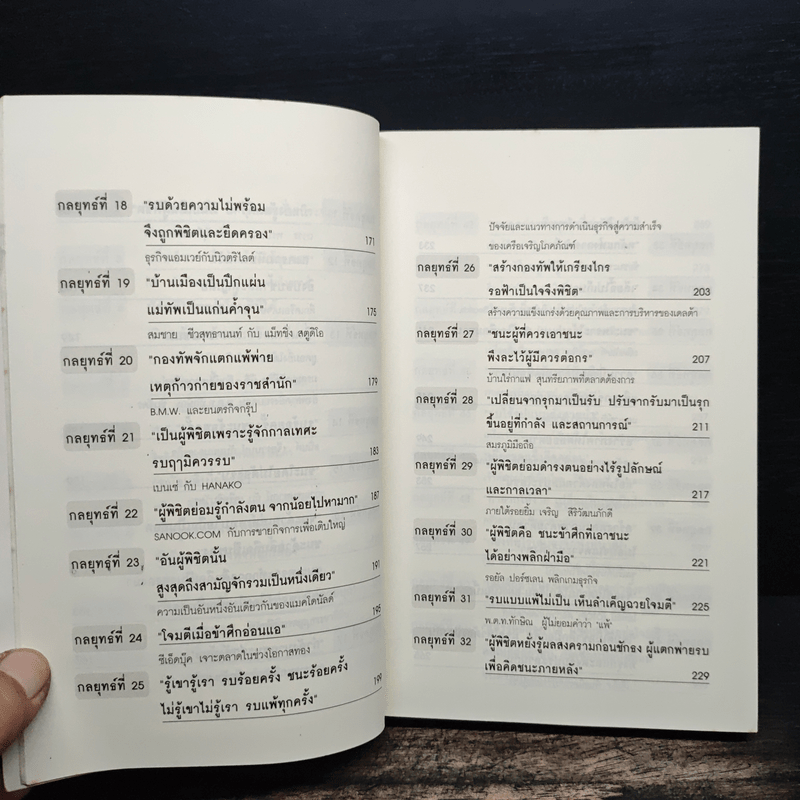 กลยุทธ์ที่ 18 "รบด้วยความไม่พร้อม
จึงถูกพิชิตและยึดครอง" 171
ธุรกิจแอมเวย์กับนิวตริไลต์
กลยุทธ์ที่ 19 "บ้านเมืองเป็นปึกแผ่น
แม่ทัพเป็นแก่นค้ำจุน" 175
สมชาย ชีวสุทธานนท์ กับ แม็ทชิ่ง สตูดิโอ
กลยุทธ์ที่ 20 "กองทัพจักแตกแพ้พ่าย
เหตุก้าวก่ายของราชสำนัก" 179
B.M.W. และยนตรกิจกรุ๊ป
กลยุทธ์ที่ 21 "เป็นผู้พิชิตเพราะรู้จักกาลเทศะ
รบฤามิควรรบ" 183
เบนเซ่ กับ HANAKO
กลยุทธ์ที่ 22 "ผู้พิชิตย่อมรู้กำลังตน จากน้อยไปหามาก" 187
SANOOK.COM กับการขายกิจการเพื่อเติบใหญ่
กลยุทธ์ที่ 23 "อันผู้พิชิตนั้น
สูงสุดถึงสามัญจักรวมเป็นหนึ่งเดียว" 191
ความเป็นอันหนึ่งอันเดียวกันของแมคโดนัลด์
กลยุทธ์ที่ 24 "โจมตีเมื่อข้าศึกอ่อนแอ" 195
ซีเอ็ดบุ๊ค เจาะตลาดในช่วงโอกาสทอง
กลยุทธ์ที่ 25 "รู้เขารู้เรา รบร้อยครั้ง ชนะร้อยครั้ง
ไม่รู้เขาไม่รู้เรา รบแพ้ทุกครั้ง" 199
ปัจจัยและแนวทางการดำเนินธุรกิจสู่ความสำเร็จ
ของเครือเจริญโภคภัณฑ์
กลยุทธ์ที่ 26 "สร้างกองทัพให้เกรียงไกร
รอฟ้าเป็นใจจึงพิชิต" 203
สร้างความแข็งแกร่งด้วยคุณภาพและการบริหารของเดลต้า
กลยุทธ์ที่ 27 "ชนะผู้ที่ควรเอาชนะ
พึงละไว้ผู้มีควรต่อกร" 207
บ้านไร่กาแฟ สุนทรียภาพที่ตลาดต้องการ
กลยุทธ์ที่ 28 "เปลี่ยนจากรุกมาเป็นรับ ปรับจากรับมาเป็นรุก
ขึ้นอยู่ที่กำลัง และสถานการณ์" 211
สมรภูมิมือถือ
กลยุทธ์ที่ 29 "ผู้พิชิตย่อมดำรงตนอย่างไร้รูปลักษณ์
และกาลเวลา" 217
ภายใต้รอยยิ้ม เจริญ สิริวัฒนภักดี
กลยุทธ์ที่ 30 "ผู้พิชิตคือ ชนะข้าศึกที่เอาชนะ
ได้อย่างพลิกฝ่ามือ" 221
รอยัล ปอร์ซเลน พลิกเกมธุรกิจ
กลยุทธ์ที่ 31 "รบแบบแพ้ไม่เป็น เห็นลำเค็ญฉวยโจมตี" 225
พ.ต.ท.ทักษิณ ผู้ไม่ยอมคำว่า 'แพ้'
กลยุทธ์ที่ 32 "ผู้พิชิตหยั่งรู้ผลสงครามก่อนชักธง ผู้แตกพ่ายรบ
เพื่อคิดชนะภายหลัง" 229